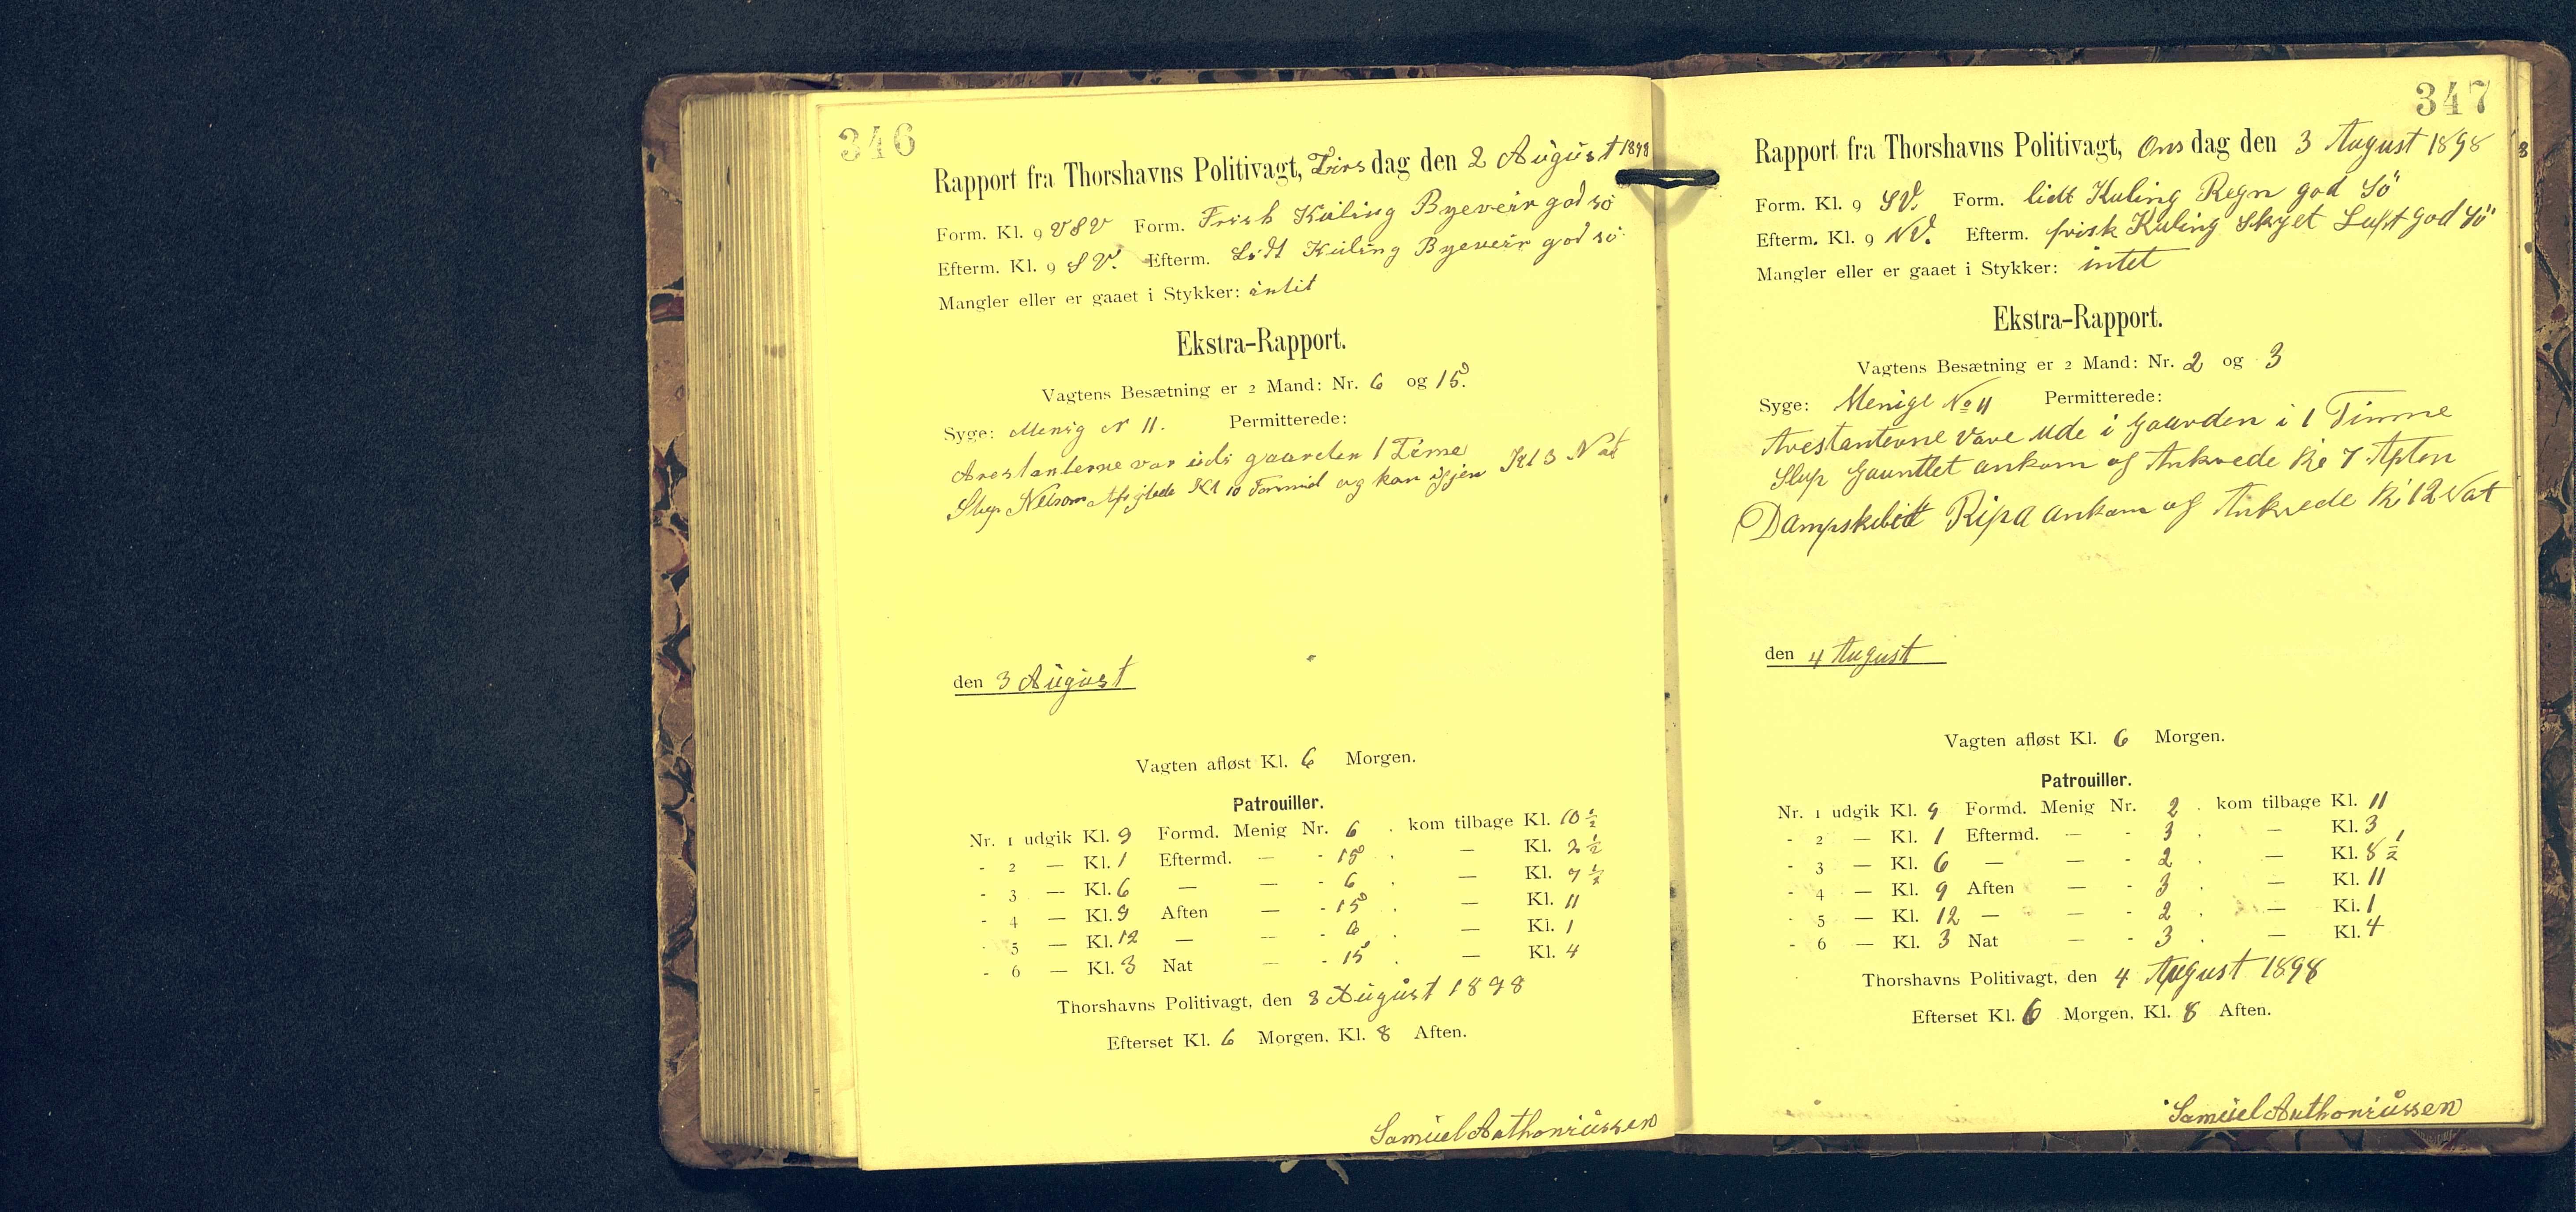 346
Rapport fra Thorshavns Politivagt, Tirsdag den 2 August 1898
Form. Kl. 9 VSV Form. Frisk Kuling Byeveir god sø
Efterm. Kl. 9 SV. Efterm. Lidt Kuling Byeveir god sø
Mangler eller er gaaet i Stykker: intit
Ekstra-Rapport.
Vagtens Besætning er 2 Mand: Nr. 6 og 15.
Syge: Menig N 11. Permitterede:
Arestanterne var udi gaarden 1 Time
Slup Nelson Afsejlede Kl 10 Formid og kom isjen Kl 3 Nat
den 3 August
Vagten afløst Kl. 6 Morgen.
Patrouiller.
Nr. 1 udgik Kl. 9 Formd. Menig Nr. 6 . kom tilbage Kl. 10 ½
- 2 — Kl. 1 Eftermd. — - 15 . — Kl. 2 ½
- 3 — Kl. 6 — — - 6 . — Kl. 7 ½
- 4 — Kl. 9 Aften — - 15 . — Kl. 11
- 5 — Kl. 12 — — - 6 . — Kl. 1
- 6 — Kl. 3 Nat — - 15 . — Kl. 4
Thorshavns Politivagt, den 3 August 1898
Efterset Kl. 6 Morgen, Kl. 8 Aften.
Samuel Anthoniussen
347
Rapport fra Thorshavns Politivagt, Onsdag den 3 August 1898
8
Form. Kl. 9 SV. Form. lidt Kuling Regn god Sö
Efterm. Kl. 9 NV. Efterm. frisk Kuling Skyet Luft god Sö
Mangler eller er gaaet i Stykker: intet
Ekstra-Rapport.
Vagtens Besætning er 2 Mand: Nr. 2 og 3
Syge: Menige No 11 Permitterede:
Arestanterne vare ude i Gaarden i 1 Timme
Slup Gauntlet ankom og Ankrede Kl 7 Aften
Dampskibet Ripa ankom og Ankrede Kl 12 Nat
den 4 August
Vagten afløst Kl. 6 Morgen.
Patrouiller.
Nr. 1 udgik Kl. 9 Formd. Menig Nr. 2 . kom tilbage Kl. 11
- 2 — Kl. 1 Eftermd. — - 3 . — Kl. 3
- 3 — Kl. 6 — — - 2 . — Kl. 8 ½
- 4 — Kl. 9 Aften — - 3 . — Kl. 11
- 5 — Kl. 12 — — - 2 . — Kl. 1
- 6 — Kl. 3 Nat — - 3 . — Kl. 4
Thorshavns Politivagt, den 4 August 1898
Efterset Kl. 6 Morgen, Kl. 8 Aften.
Samuel Anthoniussen